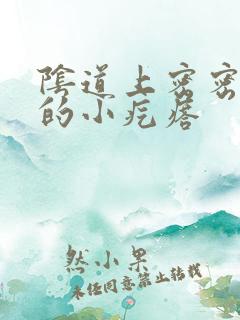 陰道上密密
的小疙瘩
然小果
未经同意禁止转载